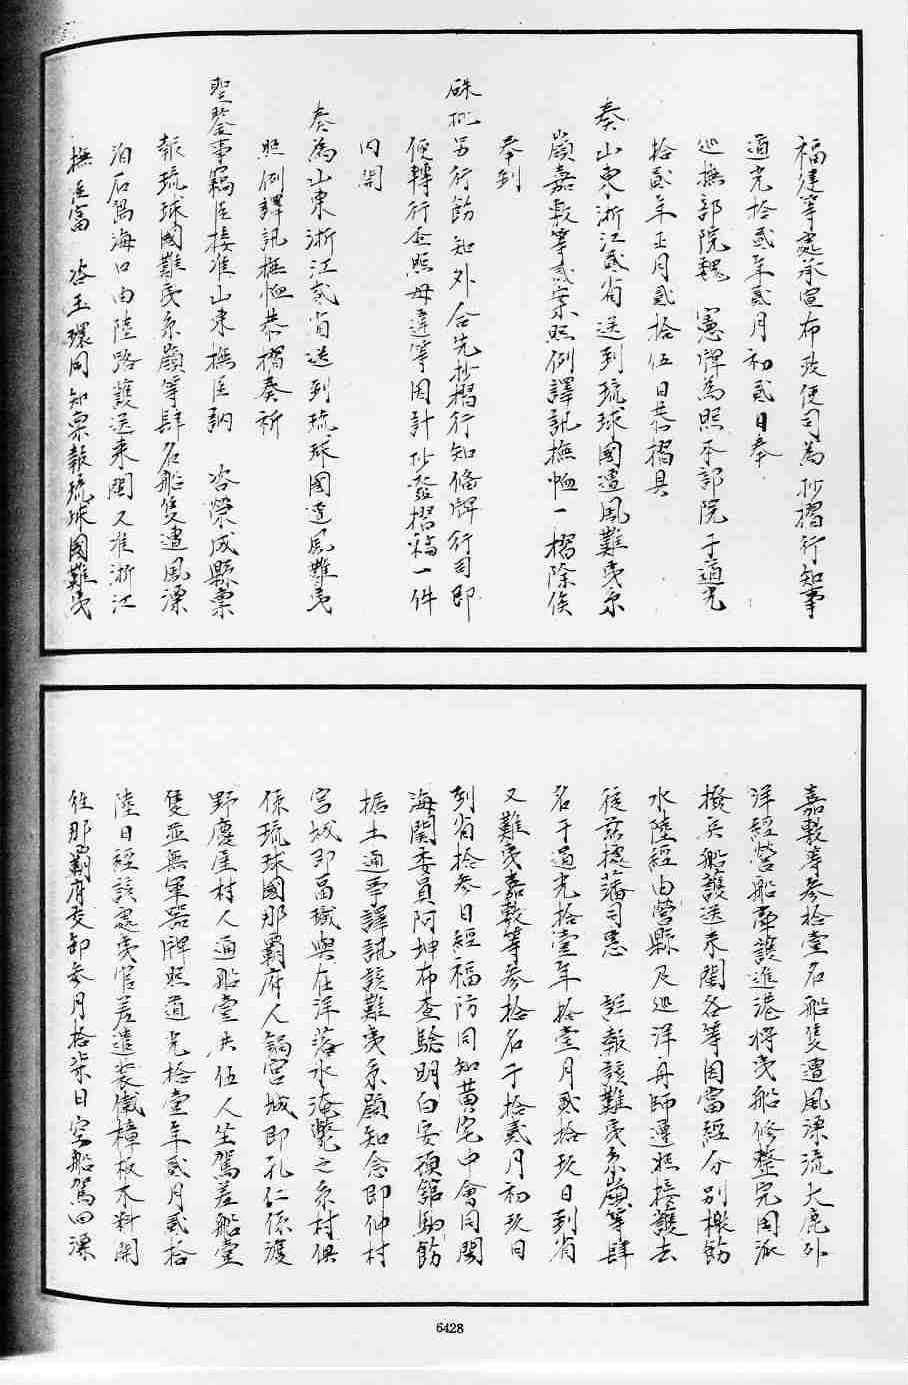 福建等處承宣布政使司為抄摺行知事
道光拾貳年貳月初貳日奉
巡撫部院魏　憲牌為照本部院于道光
拾貳年正月貳拾伍日恭摺具
奏山東浙江貳省送到琉球國遭風難夷京
嶺嘉數等貳案照例譯訊撫恤一摺除俟
奉到
硃批另行飭知外合先抄摺行知備牌行司即
便轉行查照毋違等因計抄發摺稿一件
內開
奏為山東浙江貳省送到琉球國遭風難夷
照例譯訊撫恤恭摺奏祈
聖鑒事竊臣接准山東撫臣訥　咨榮成縣稟
報琉球國難夷京嶺等肆名船隻遭風漂
泊石隝海口由陸路護送來閩又准浙江
撫臣富　咨玉環同知稟報琉球國難夷
嘉數等參拾壹名船隻遭風漂流大鹿外
洋經營船牽護進港將夷船修整完固派
撥兵船護送來閩各等因當經分別檄飭
水陸經由營縣及巡洋舟師遵照接護去
後茲據藩司惠　詳報該難夷京嶺等肆
名于道光拾壹年拾壹月貳拾玖日到省
又難夷嘉數等參拾名于拾貳月初玖日
到省拾參日經福防同知黃宅中會同閩
海關委員阿坤布查驗明白安頓館驛飭
據土通事譯訊該難夷京嶺知念即仲村
宮城即富城與在洋落水淹斃之京村俱
係琉球國那霸府人鍋宮城即孔仁係渡
野慶崖村人通船壹共伍人坐駕差船壹
隻並無軍器牌照道光拾壹年貳月貳拾
陸日經該處夷官差遣裝儎樟板木料開
往那霸府交卸參月拾柒日空船駕回漂
6428